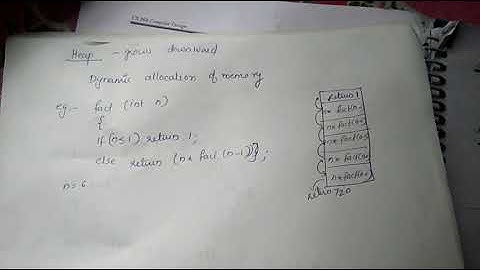 CS 304 Compiler Design
Heap - grows downward
Dynamic allocation of memory
eg:- fact (int n)
{
if (n≤1) return 1;
else return (n* fact (n-1))};
n=6
return 1
n* fact(n-
n* fact(n-
n* fact(n-
n* fact(n-
n* fact(n-
return 720